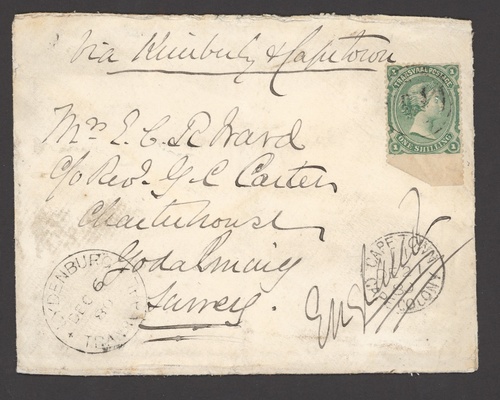 Via Kimberly & Capetown
TRANSVAAL POSTAGE
ONE SHILLING
Mrs E. C. R. Ward
c/o Revd. G C Carter
Charterhouse
Godalming
Surrey
England
LYDENBURG
DEC 6
80
TRA
CAPE TOWN
COLONY